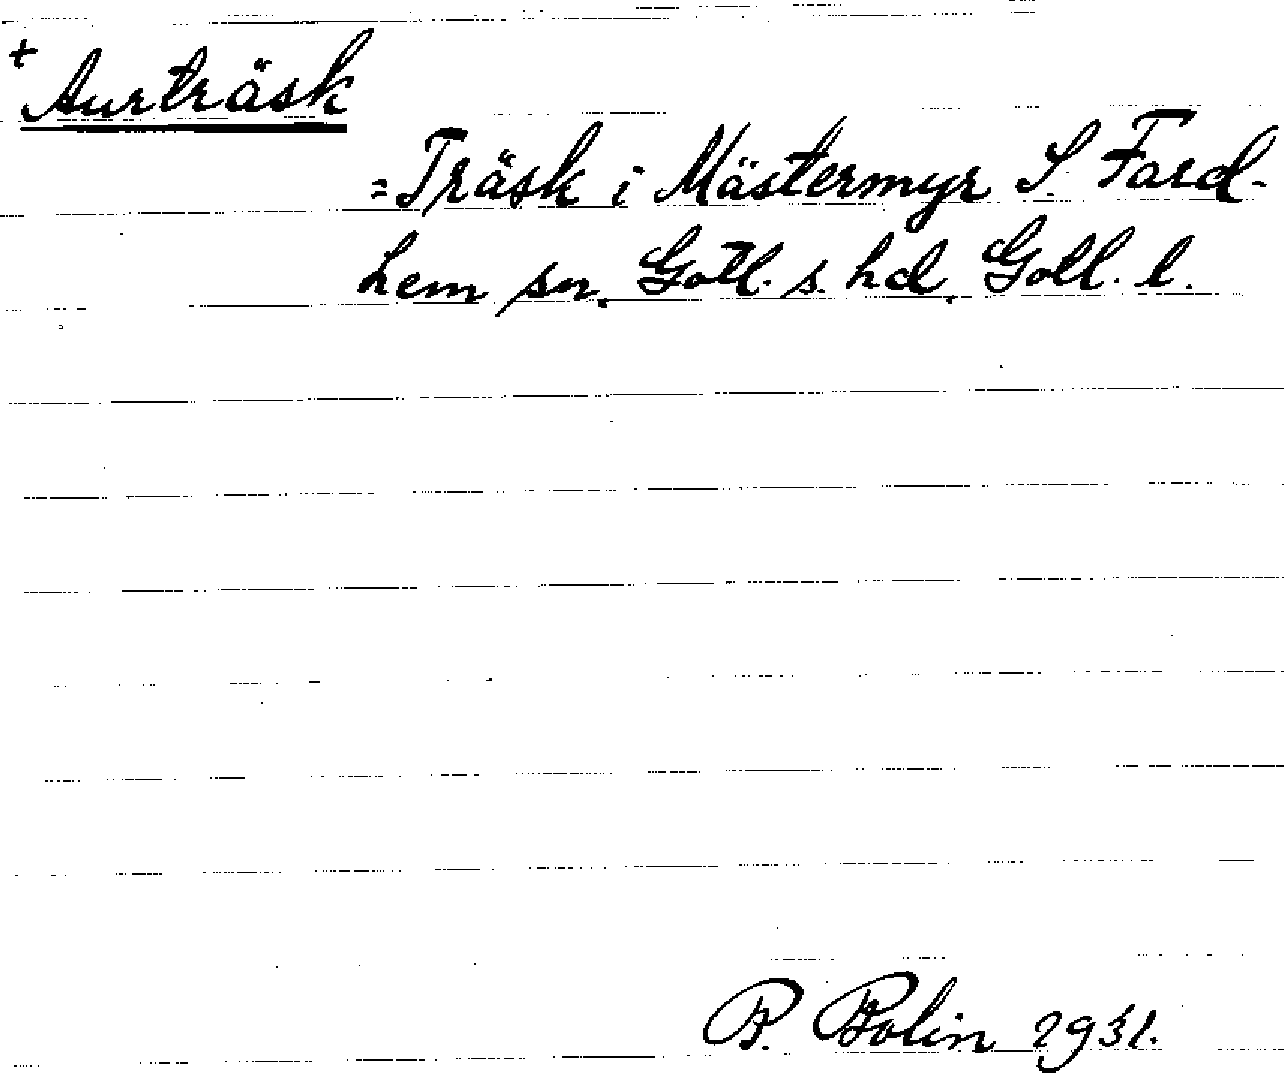 + Aurträsk
= Träsk i Mästermyr S. Fard-
hem sn. Gotl. s. hd. Gotl. l.
P. Bolin 1931.